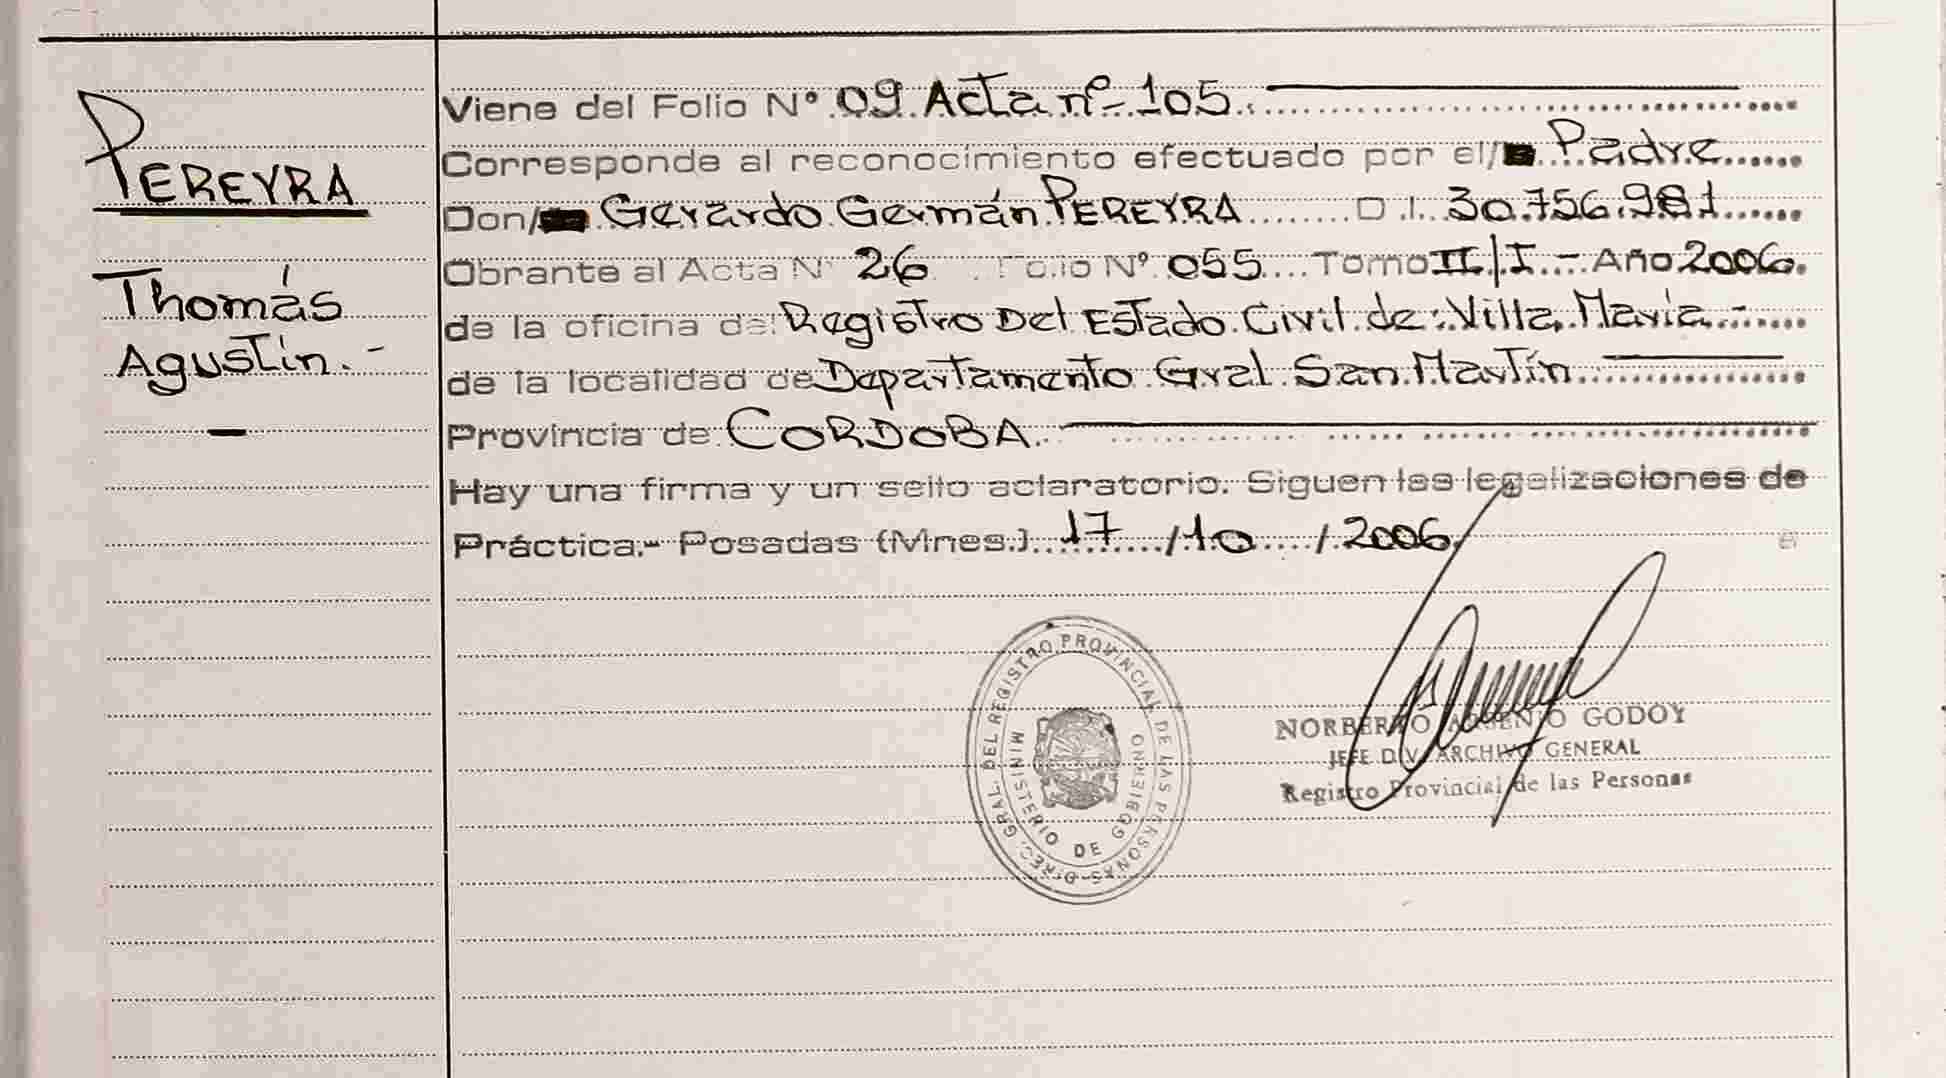 PEREYRA
Thomás
Agustín.-
Viene del Folio N° 09 Acta nº 105.
Corresponde al reconocimiento efectuado por el/ Padre
Don/ Gerardo Germán PEREYRA D.I. 30.756.981
Obrante al Acta N° 26 Folio N° 055 Tomo II/I.- Año 2006.
de la oficina del Registro Del Estado Civil de: Villa María.-
de la localidad de Departamento Gral San Martín
Provincia de CORDOBA.
Hay una firma y un sello aclaratorio. Siguen las legalizaciones de
Práctica.- Posadas (Mnes.) 17 / 10 / 2006.
DIREC. GRAL. DEL REGISTRO PROVINCIAL DE LAS PERSONAS
MINISTERIO DE GOBIERNO
NORBERTO GODOY
JEFE DIV. ARCHIVO GENERAL
Registro Provincial de las Personas